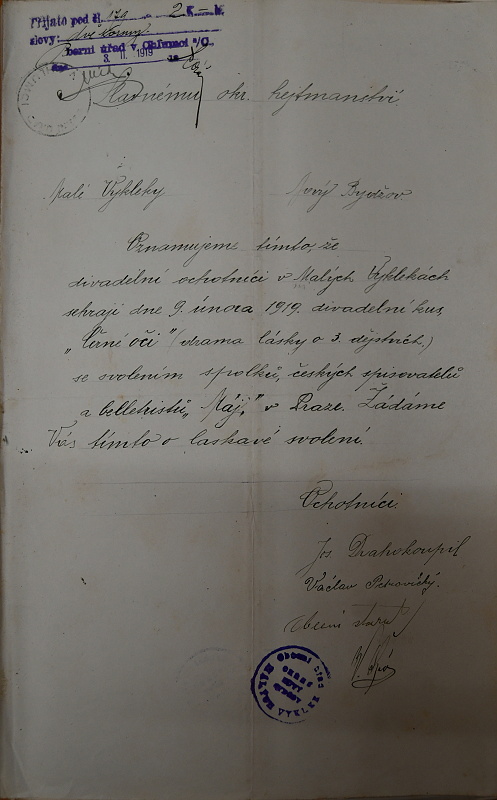 Přijato pod čj. 179 2 K - h
slovy: dvě koruny
berní úřad v Chlumci n/C.,
dne 3. II. 1919
Slavnému okr. hejtmanství.
Malé Výkleky Nový Bydžov.
Oznamujeme tímto, že
divadelní ochotníci v Malých Výklekách
sehrají dne 9. února 1919. divadelní kus,
„Černé oči" (drama lásky o 3. dějstvích.)
se svolením spolků, českých spisovatelů
a belletristů, „Máj," v Praze. Žádáme
Vás tímto o laskavé svolení.
Ochotníci.
Jos. Drahokoupil
Václav Petrovický.
obecní starosta
Obecní úřad
OKRES
NOVÝ
BYDŽOV